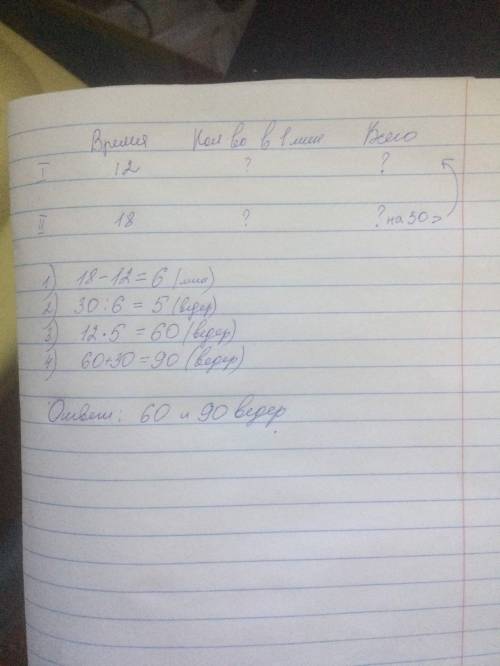 Время Кол во в 1 мин Всего
I 12 ? ?
II 18 ? ? на 30 >
1) 18-12=6 (мин)
2) 30:6 = 5 (ведер)
3) 12·5 = 60 (ведер)
4) 60+30=90 (ведер)
Ответ: 60 и 90 ведер